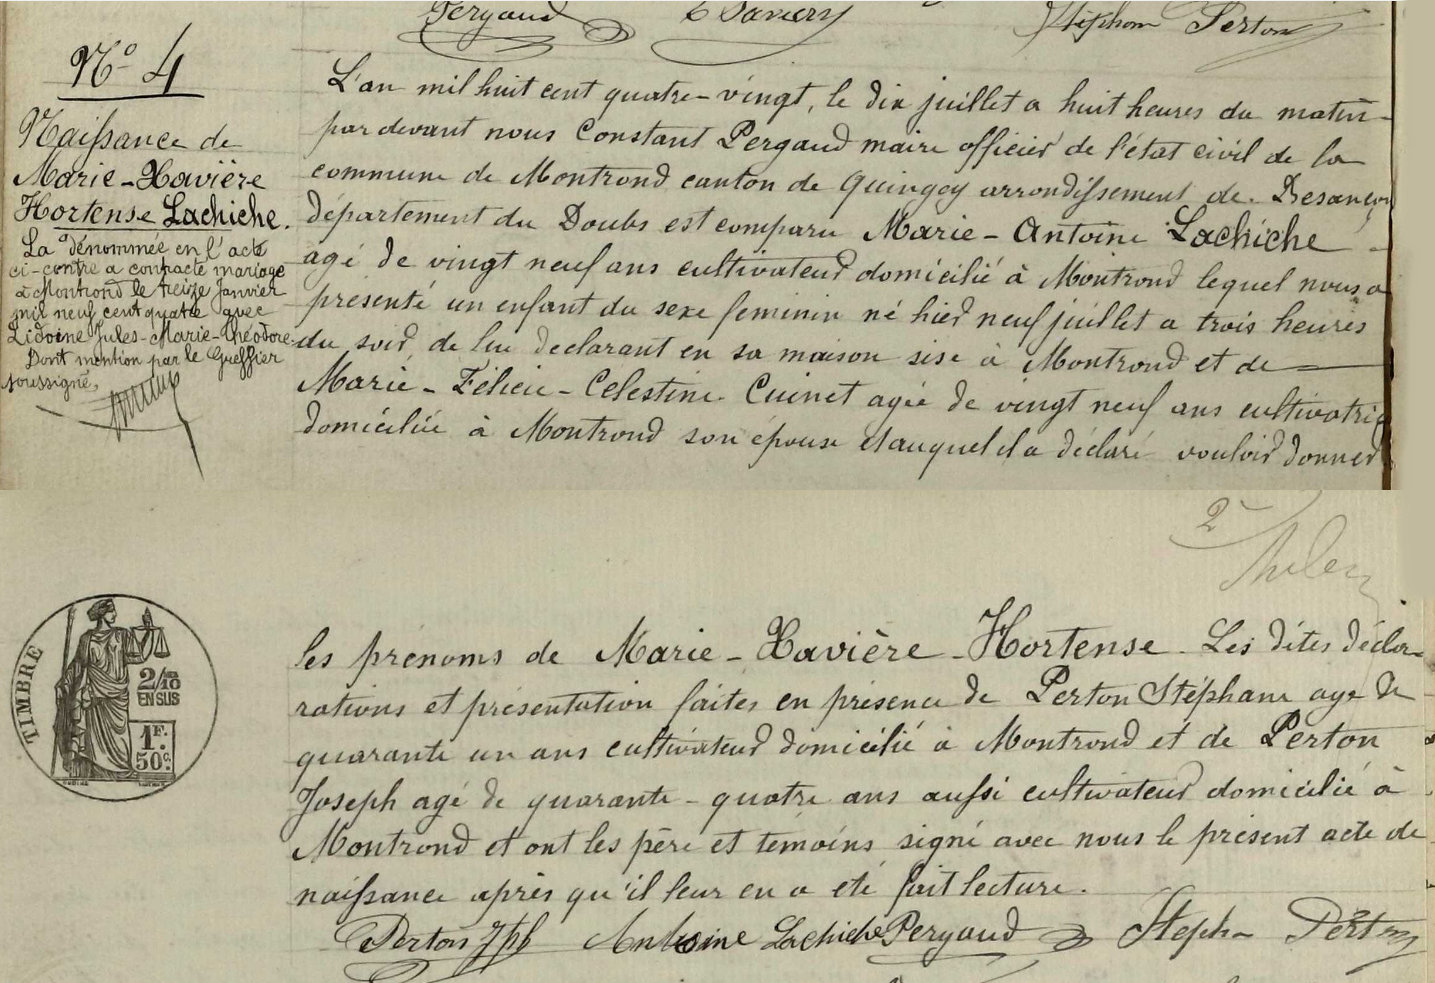 Pergaud Stéphane Perton
N° 4
Naissance de
Marie-Xavière
Hortense Lachiche.
La dénommée en l'acte
ci-contre a contracté mariage
à Montrond le treize Janvier
mil neuf cent quatre avec
Lidoine Jules-Marie-Théodore.
Dont mention par le Greffier
soussigné,
L'an mil huit cent quatre-vingt, le dix juillet a huit heures du matin
par devant nous Constant Pergaud maire officier de l'état civil de la
commune de Montrond canton de Quingey arrondissement de Besançon
département du Doubs est comparu Marie-Antoine Lachiche
agé de vingt neuf ans cultivateur domicilié à Montrond lequel nous a
presenté un enfant du sexe feminin né hier neuf juillet a trois heures
du soir, de lui declarant en sa maison sise à Montrond et de
Marie-Félicie-Celestine Cuinet agée de vingt neuf ans cultivatrice
domiciliée à Montrond son épouse et auquel il a déclaré vouloir donner
2
TIMBRE
2/10
EN SUS
1F.
50c.
les prénoms de Marie-Xavière-Hortense. Les dites décla-
rations et présentation faites en présence de Perton Stéphane agé de
quarante un ans cultivateur domicilié à Montrond et de Perton
Joseph agé de quarante-quatre ans aussi cultivateur domicilié à
Montrond et ont les père et témoins signé avec nous le présent acte de
naissance après qu'il leur en a eté fait lecture.
Perton Jph Antoine Lachiche Pergaud Steph Perton